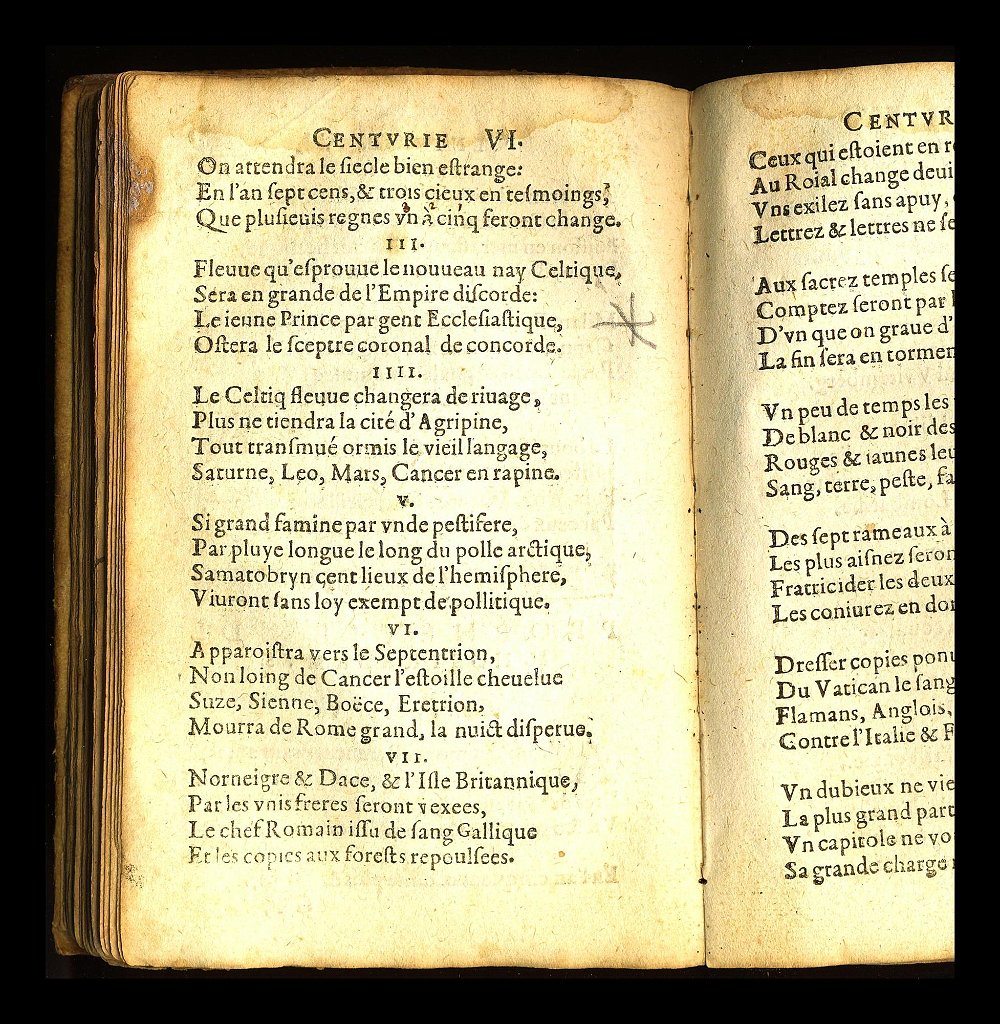 CENTVRIE VI.
On attendra le ſiecle bien eſtrange:
En l'an ſept cens, & trois cieux en teſmoings,
Que pluſieuis regnes vn à cinq feront change.
III.
Fleuue qu'eſprouue le nouueau nay Celtique,
Sera en grande de l'Empire diſcorde:
Le ieune Prince par gent Eccleſiaſtique,
Oſtera le ſceptre coronal de concorde.
IIII.
Le Celtiq fleuue changera de riuage,
Plus ne tiendra la cité d'Agripine,
Tout tranſmué ormis le vieil langage,
Saturne, Leo, Mars, Cancer en rapine.
V.
Si grand famine par vnde peſtifere,
Par pluye longue le long du polle arctique,
Samatobryn cent lieux de l'hemiſphere,
Viuront ſans loy exempt de pollitique.
VI.
Apparoiſtra vers le Septentrion,
Non loing de Cancer l'eſtoille cheuelue
Suze, Sienne, Boëce, Eretrion,
Mourra de Rome grand, la nuict diſperue.
VII.
Norneigre & Dace, & l'Iſle Britannique,
Par les vnis freres ſeront vexees,
Le chef Romain iſſu de ſang Gallique
Et les copies aux foreſts repoulſees.
CENTVR
Ceux qui eſtoient en r
Au Roial change deui
Vns exilez ſans apuy,
Lettrez & lettres ne ſe
Aux ſacrez temples ſe
Comptez ſeront par
D'vn que on graue d'
La fin ſera en tormen
Vn peu de temps les
De blanc & noir des
Rouges & iaunes leu
Sang, terre, peſte, fa
Des ſept rameaux à
Les plus aiſnez ſeron
Fratricider les deux
Les coniurez en dor
Dreſſer copies pou
Du Vatican le ſang
Flamans, Anglois,
Contre l'Italie & F
Vn dubieux ne vie
La plus grand part
Vn capitole ne vo
Sa grande charge